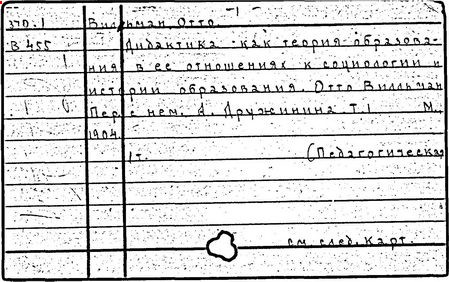 370.1 Вильман, Отто.
В 455 Дидактика как теория образова-
ния в ее отношениях к социологии и
истории образования. Отто Вилльман
Пер. с нем. А. Дружинина. Т. 1 М.,
1904.
1 т. (Педагогическая
см. след. карт.